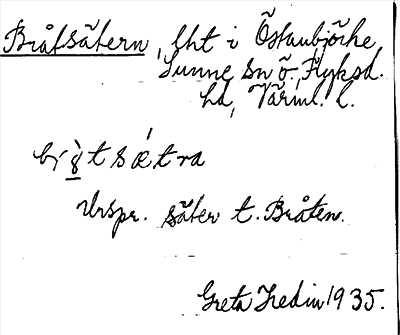 Bråtsätern, lht i Östanbjörke
Sunne sn ö., Fryksd.
hd, Värml. l.
br tsǽtra
Urspr. säter t. Bråten.
Greta Hedin 1935.